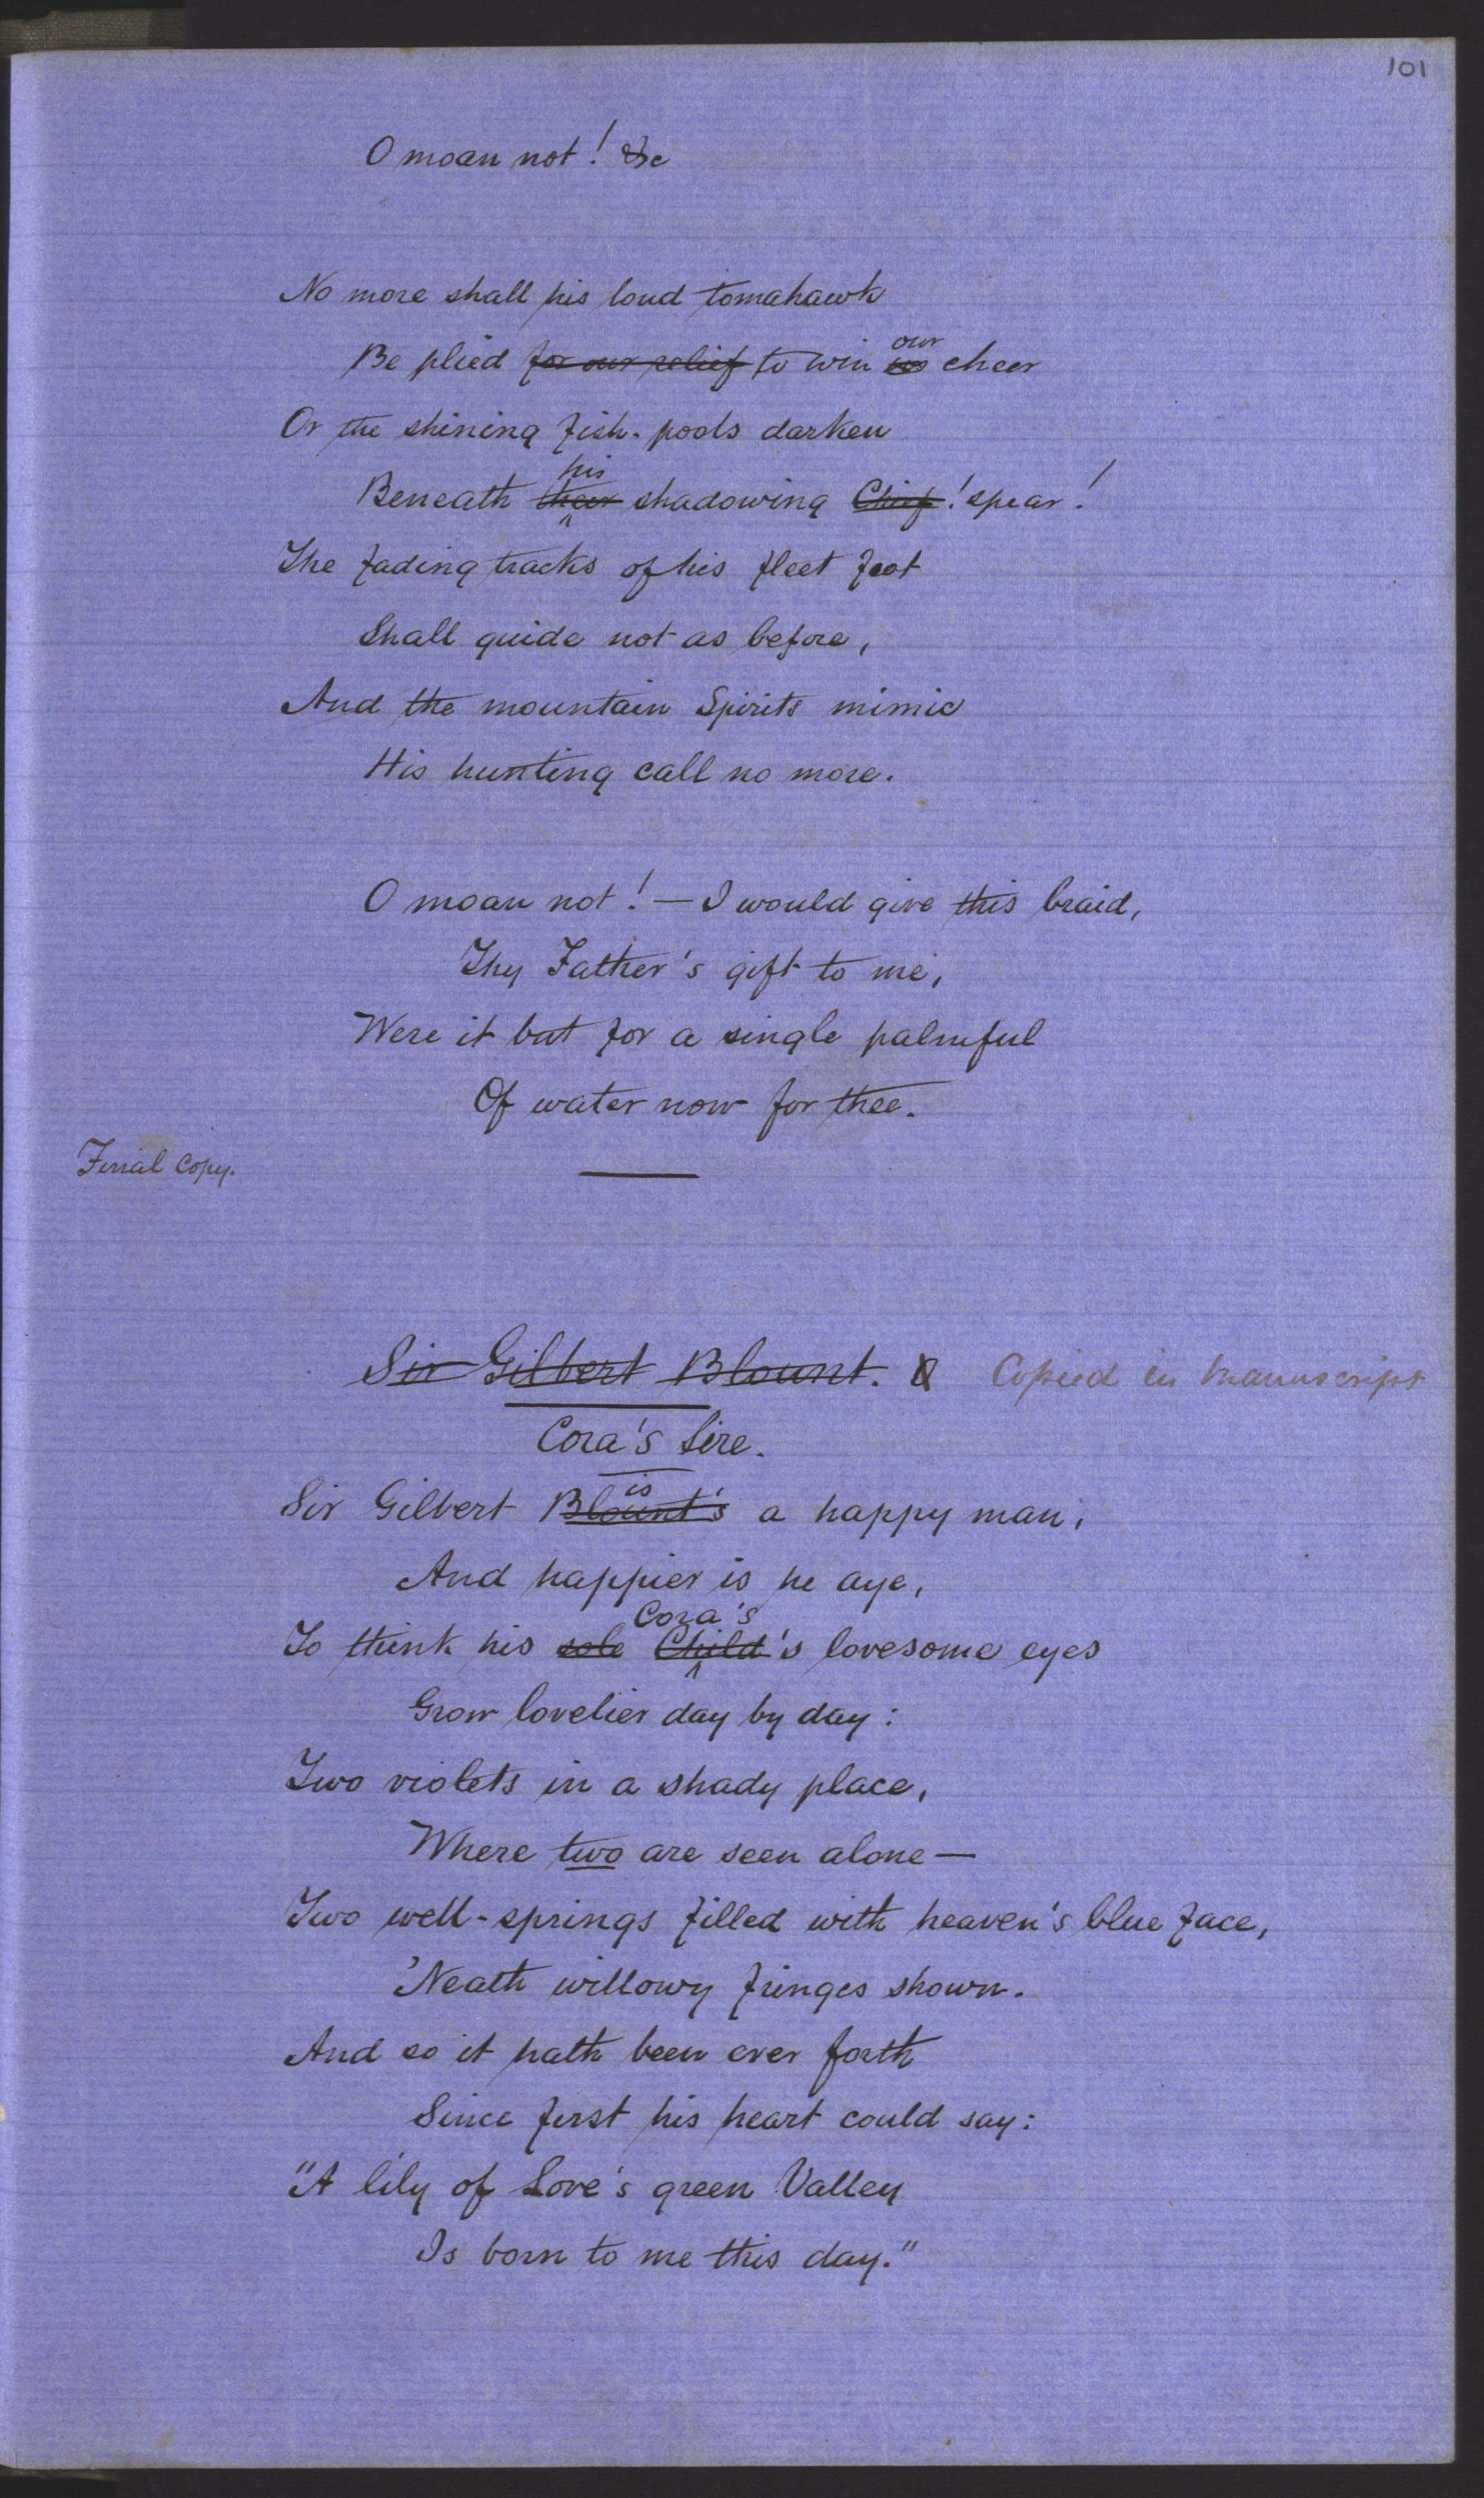 101
O moan not! &c
No more shall his loud tomahawk
our
Be plied for our relief to win us cheer
Or the shining fish-pools darken
his
Beneath their shadowing Chief! spear!
The fading tracks of his fleet foot
Shall guide not as before,
And the mountain Spirits mimic
His hunting call no more.
O moan not! — I would give this braid,
Thy Father's gift to me,
Were it but for a single palmful
Of water now for thee.
Final Copy.
Sir Gilbert Blount. Copied in Manuscript
Cora's Sire.
is
Sir Gilbert Blount's a happy man,
And happier is he aye,
Cora's
To think his sole Child's lovesome eyes
Grow lovelier day by day:
Two violets in a shady place,
Where two are seen alone —
Two well-springs filled with heaven's blue face,
'Neath willowy fringes shown.
And so it hath been ever forth
Since first his heart could say:
"A lily of Love's green Valley
Is born to me this day."